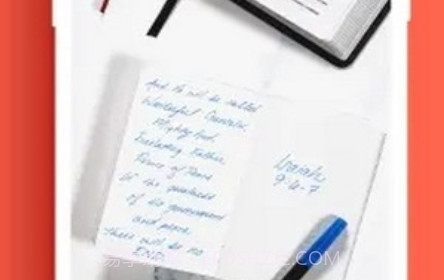 And He will be called
Wonderful Counselor,
Mighty God,
Everlasting Father,
Prince of Peace
Of the greatness
of his government
and peace
there will be no
END.
Isaiah
9:6-7